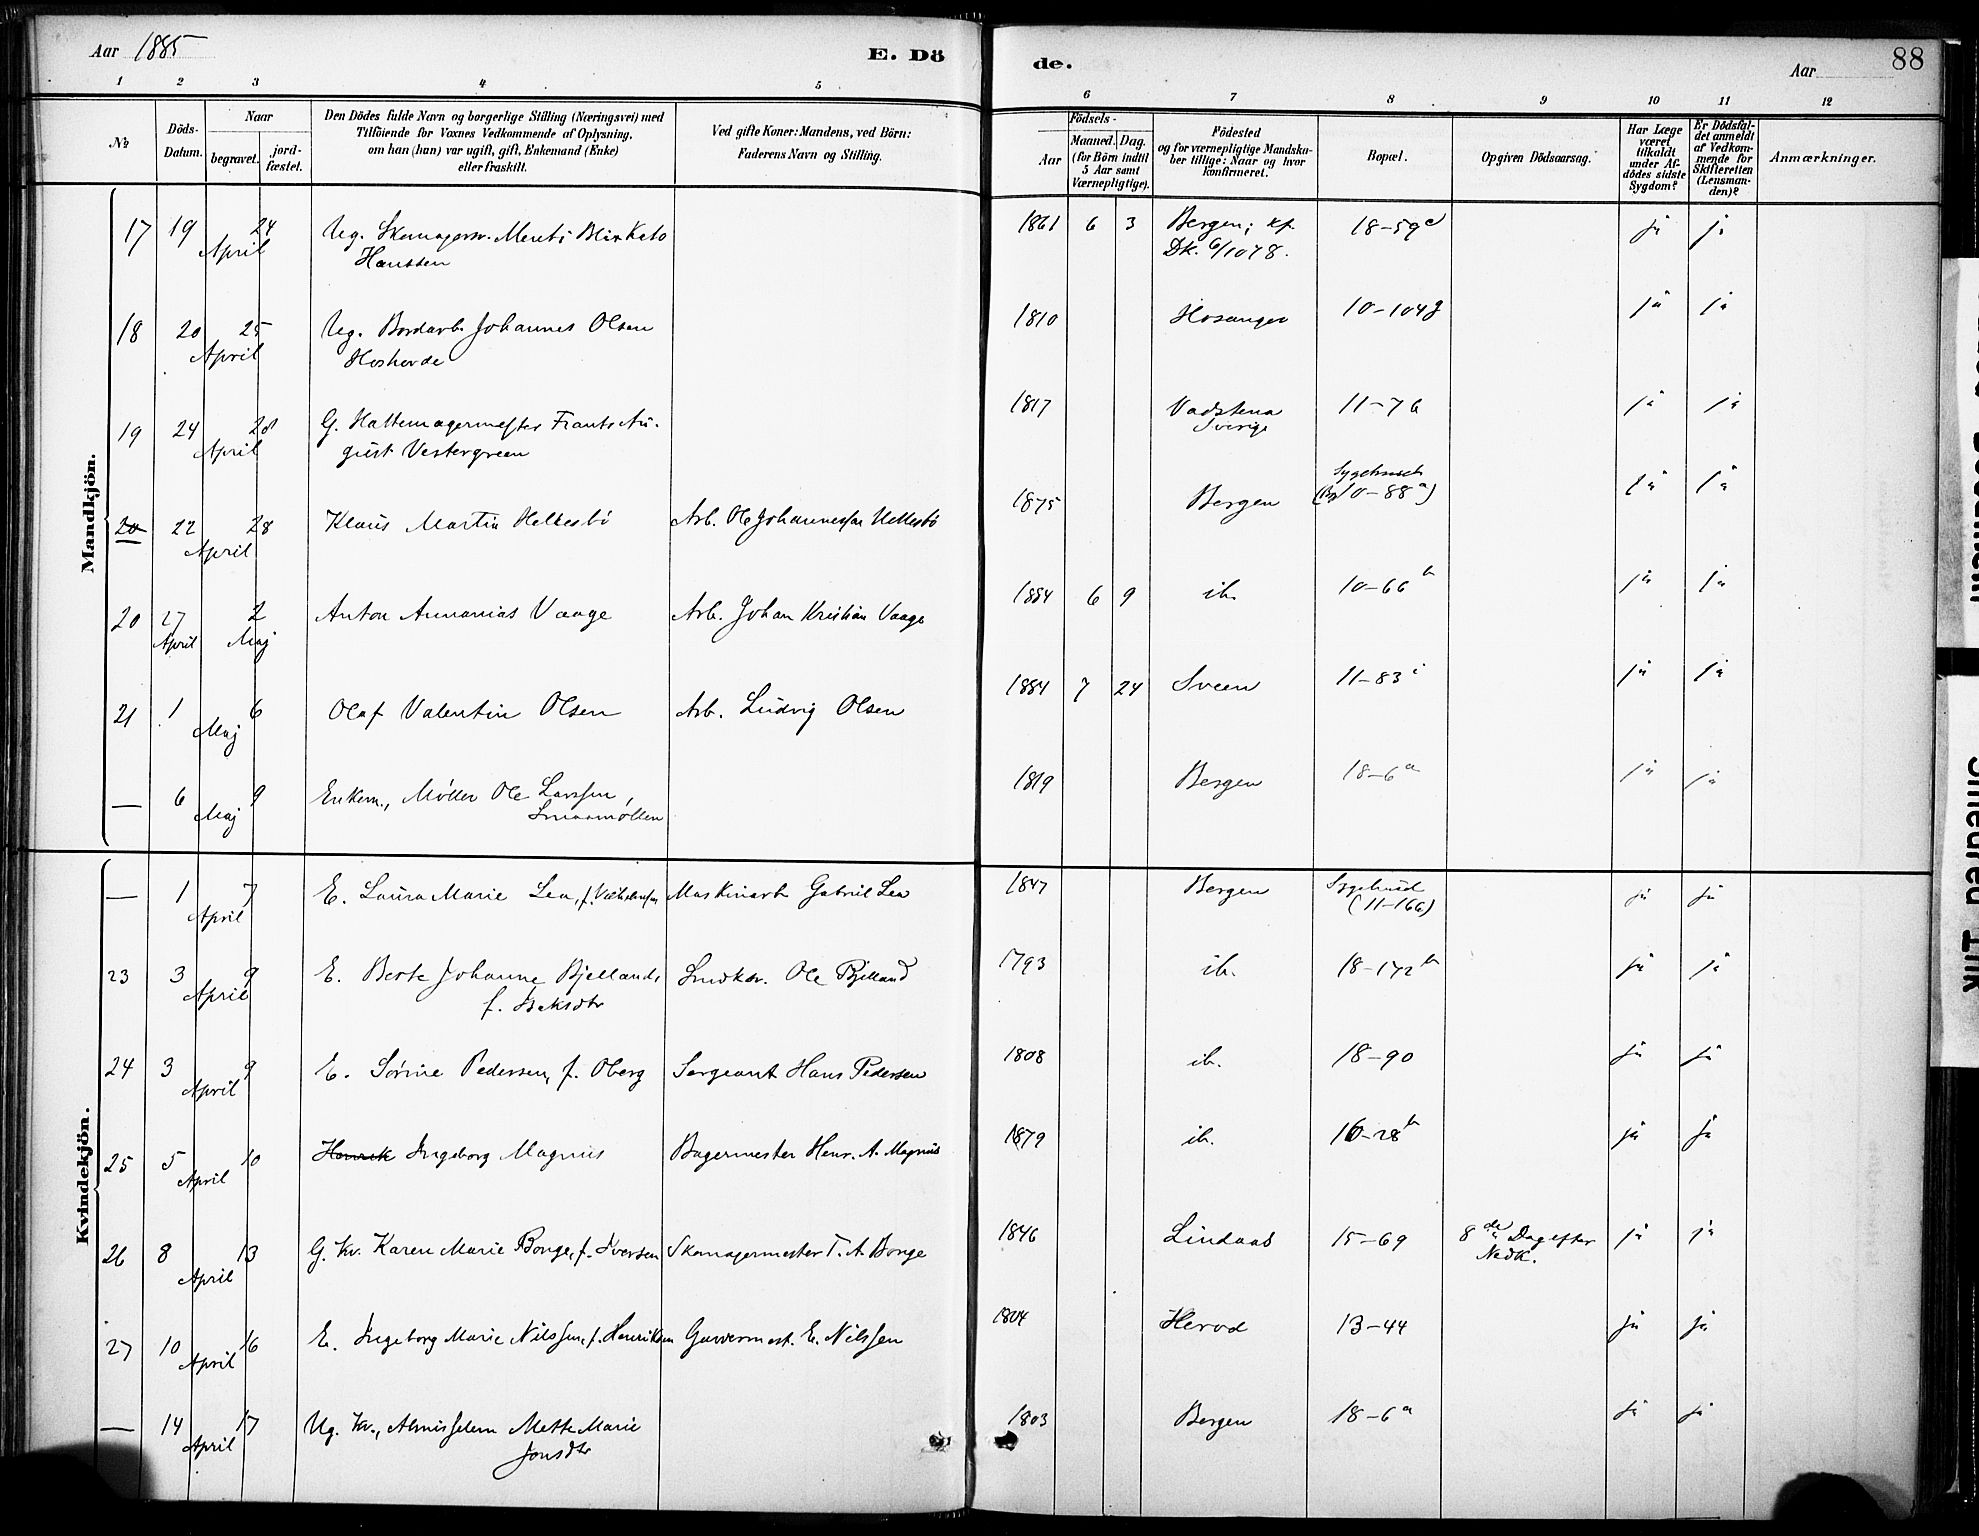 Aar 1885
E. Dö
de.
Aar
88
1 2 3 4 5 6 7 8 9 10 11 12
№
Döds-
Datum.
Naar
begravet.
jord-
fæstet.
Den Dödes fulde Navn og borgerlige Stilling (Næringsvei) med
Tilföiende for Voxnes Vedkommende af Oplysning,
om han (hun) var ugift, gift, Enkemand (Enke)
eller fraskilt.
Ved gifte Koner: Mandens, ved Börn:
Faderens Navn og Stilling.
Födsels-
Aar
Maaned. Dag.
(for Börn indtil
5 Aar samt
Værnepligtige).
Födested
og for værnepligtige Mandska-
ber tillige: Naar og hvor
konfirmeret.
Bopæl.
Opgiven Dödsaarsag.
Har Læge
været
tilkaldt
under Af-
dödes sidste
Sygdom?
Er Dödsfal-
det anmeldt
af Vedkom-
mende for
Skifteretten
(Lensman-
den)?
Anmærkninger.
Mandkjön.
17 19 24 Ug. Skomagersv. Ments Blix Kato 1861 6 3 Bergen; kf. 18-59c ja ja
April Hanssen Dk. 6/10 78.
18 20 25 Ug. Bordarb. Johannes Olsen 1810 Hosanger 10-104g ja ja
April
19 24 28 G. Hattemagermester Frants Au- 1817 Vadstena 11-76 ja ja
April gust Vestergreen Sverige
20 22 28 Klaus Martin Hellesbø Arb. Ole Johannessen Hellesbø 1875 Bergen (10-88a) ja ja
April
20 27 2 Anton Annanias Vaage Arb. Johan Kristian Vaage 1884 6 9 ib. 10-66b ja ja
April Maj
21 1 6 Olaf Valentin Olsen Arb. Ludvig Olsen 1884 7 24 Sveen 11-83i ja ja
Maj
— 6 9 Enkem., Møller Ole Larssen, 1819 Bergen 18-6a ja ja
Maj
Kvindekjön.
— 1 7 E. Laura Marie Lea, Maskinarb Gabriel Lea 1847 Bergen Sygehuset ja ja
April (11-166)
23 3 9 E. Berte Johanne Bjellands Ole Bjelland 1793 ib. 18-172b ja ja
April
24 3 9 E. Sørine Pedersen, f. Oberg Sergeant Hans Pedersen 1808 ib. 18-90 ja ja
April
25 5 10 Henrik Ingeborg Magnus Bagermester Henr. A. Magnus 1879 ib. 16-28b ja ja
April
26 8 13 G. Kv. Karen Marie Borge, f. Iversen Skomagermester T. A. Borge 1846 Lindaas 15-69 8de Dag efter ja ja
April Nedk.
27 10 16 E. Ingeborg Marie Nilssen, f. Henriksen Garvermest. E. Nilssen 1804 13-44 ja ja
April
— 14 17 Ug. Kv., Almisselem Mette Marie 1803 Bergen 18-6a ja ja
April Jonsdtr